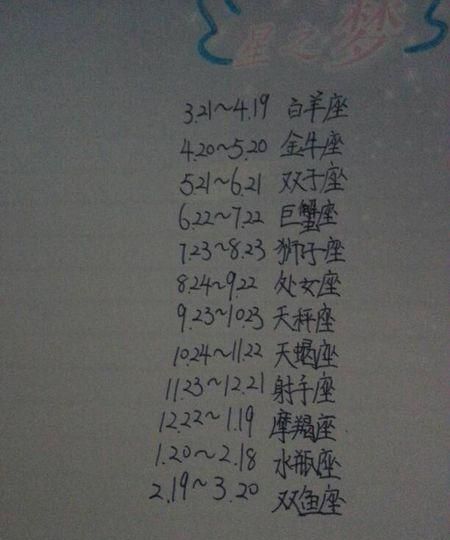 星之梦
3.21~4.19 白羊座
4.20~5.20 金牛座
5.21~6.21 双子座
6.22~7.22 巨蟹座
7.23~8.23 狮子座
8.24~9.22 处女座
9.23~10.23 天秤座
10.24~11.22 天蝎座
11.23~12.21 射手座
12.22~1.19 摩羯座
1.20~2.18 水瓶座
2.19~3.20 双鱼座